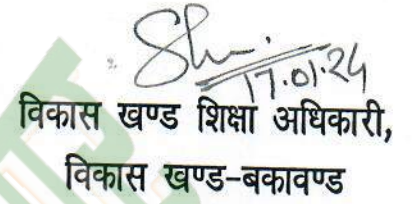 17.01.24
विकास खण्ड शिक्षा अधिकारी,
विकास खण्ड-बकावण्ड